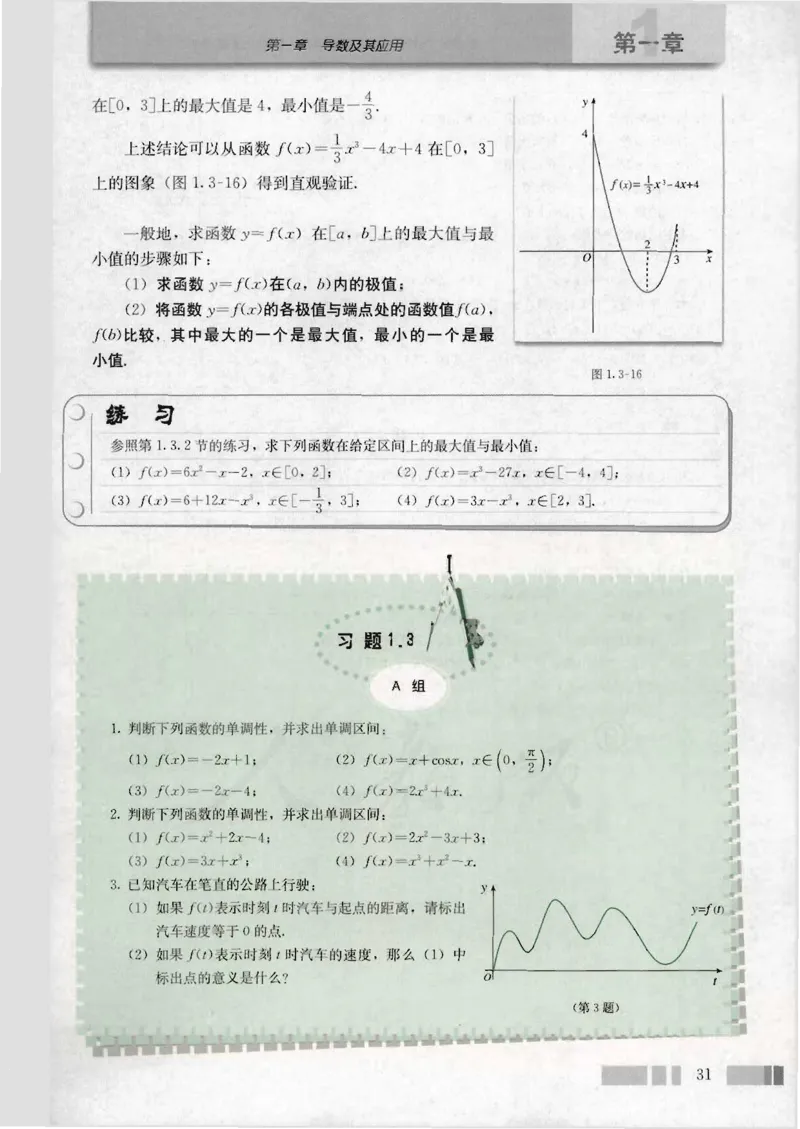 第一章 导数及其应用
第一章
在[0，3]上的最大值是 4，最小值是−4/3.
上述结论可以从函数 f(x)=1/3x³−4x+4 在[0，3]
上的图象（图 1.3-16）得到直观验证.
一般地，求函数 y=f(x) 在[a，b]上的最大值与最
小值的步骤如下：
（1）求函数 y=f(x)在(a，b)内的极值；
（2）将函数 y=f(x)的各极值与端点处的函数值f(a)，
f(b)比较，其中最大的一个是最大值，最小的一个是最
小值.
y
4
f(x)=1/3x³-4x+4
2
O
3
x
图 1.3-16
练 习
参照第 1.3.2 节的练习，求下列函数在给定区间上的最大值与最小值：
（1）f(x)=6x²−x−2，x∈[0，2]； （2）f(x)=x³−27x，x∈[−4，4]；
（3）f(x)=6+12x−x³，x∈[−1/3，3]； （4）f(x)=3x−x³，x∈[2，3].
习 题 1.3
A 组
1. 判断下列函数的单调性，并求出单调区间：
（1）f(x)=−2x+1； （2）f(x)=x+cosx，x∈(0，π/2)；
（3）f(x)=−2x−4； （4）f(x)=2x³+4x.
2. 判断下列函数的单调性，并求出单调区间：
（1）f(x)=x²+2x−4； （2）f(x)=2x²−3x+3；
（3）f(x)=3x+x³； （4）f(x)=x³+x²−x.
3. 已知汽车在笔直的公路上行驶：
（1）如果 f(t)表示时刻 t 时汽车与起点的距离，请标出
汽车速度等于 0 的点.
（2）如果 f(t)表示时刻 t 时汽车的速度，那么（1）中
标出点的意义是什么？
y
y=f(t)
O
t
（第 3 题）
31